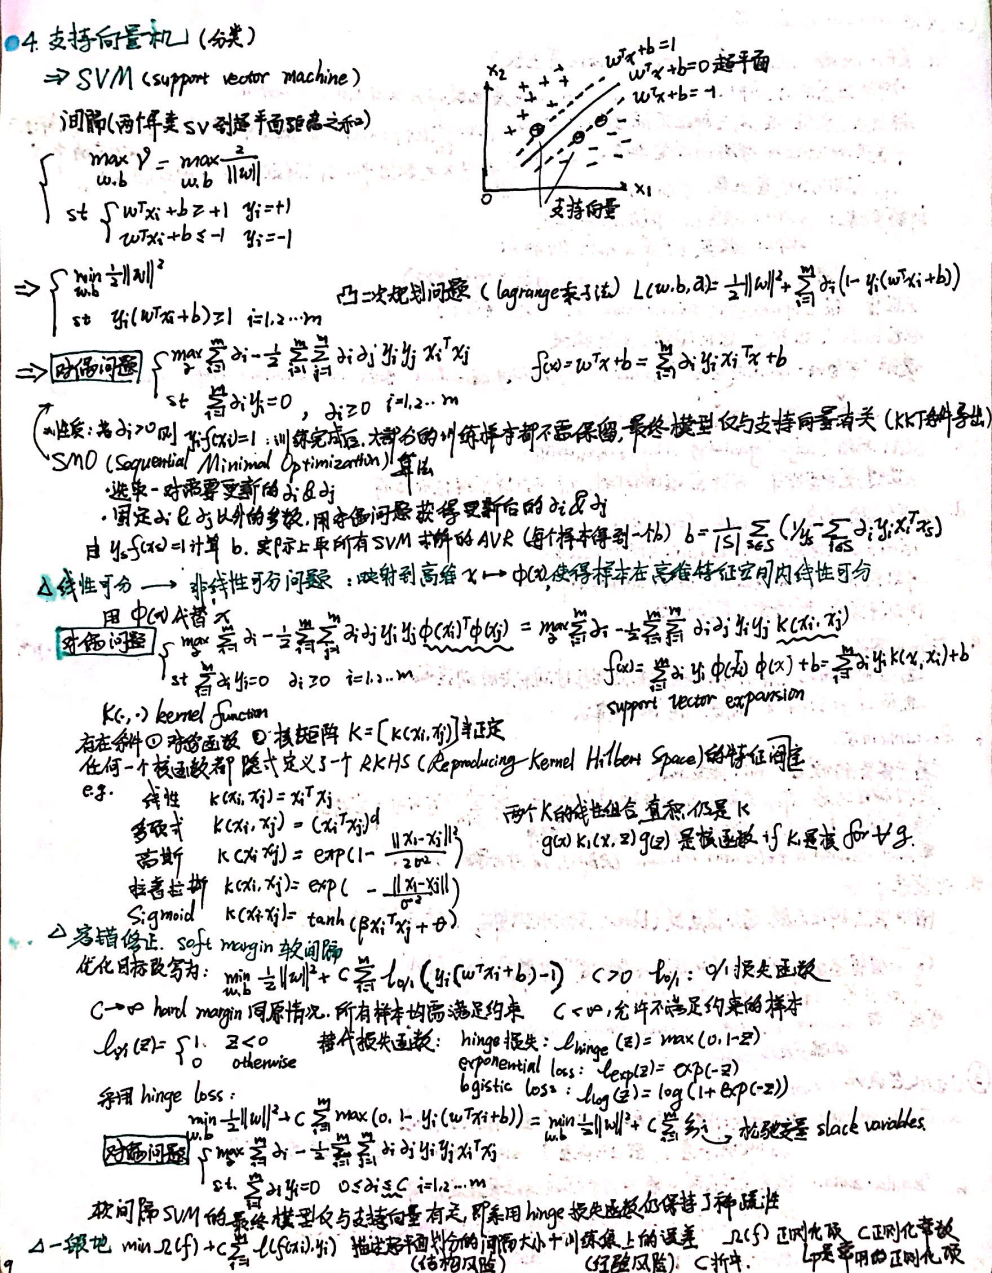 4. 支持向量机 (分类)
⇒ SVM (support vector machine)
间隔(两个异类SV到超平面距离之和)
max_{w.b} γ = max_{w.b} 2/||w||
st { wᵀxi+b ≥ +1 yi=+1
wᵀxi+b ≤ -1 yi=-1
x2
wᵀx+b=1
wᵀx+b=0 超平面
wᵀx+b=-1
0
x1
支持向量
⇒ { min_{w.b} ½||w||²
st yi(wᵀxi+b)≥1 i=1,2...m
凸二次规划问题 (lagrange乘子法) L(w.b.∂)=½||w||²+Σ_{i=1}^m ∂i(1-yi(wᵀxi+b))
⇒ 对偶问题 { max_∂ Σ_{i=1}^m ∂i - ½ Σ_{i=1}^m Σ_{j=1}^m ∂i∂j yi yj xiᵀxj , f(x)=wᵀx+b = Σ_{i=1}^m ∂i yi xiᵀx+b
st Σ_{i=1}^m ∂i yi=0 , ∂i≥0 i=1,2..m
性质: 若∂i>0则 yi f(xi)=1 : 训练完成后, 大部分的训练样本都不需保留, 最终模型仅与支持向量有关 (KKT条件导出)
SMO (Sequential Minimal Optimization) 算法
·选取一对需要更新的∂i & ∂j
·固定∂i & ∂j以外的参数, 用对偶问题获得更新后的∂i & ∂j
由 ys f(xs)=1计算 b. 实际上取所有SVM求解的AVR (每个样本得到一个b) b= 1/|S| Σ_{s∈S} (1/ys - Σ_{i∈S} ∂i yi xiᵀxs)
△线性可分 → 非线性可分问题 : 映射到高维 x ↦ Φ(x),使得样本在高维特征空间内线性可分
用 Φ(x) 代替 x
对偶问题 { max_∂ Σ_{i=1}^m ∂i - ½ Σ_{i=1}^m Σ_{j=1}^m ∂i∂j yi yj Φ(xi)ᵀΦ(xj) = max_∂ Σ_{i=1}^m ∂i - ½ Σ_{i=1}^m Σ_{j=1}^m ∂i∂j yi yj K(xi, xj)
st Σ_{i=1}^m ∂i yi=0 ∂i≥0 i=1,2..m
f(x)= Σ_{i=1}^m ∂i yi Φ(xi)ᵀΦ(x)+b= Σ_{i=1}^m ∂i yi K(x, xi)+b
support vector expansion
K(·,·) kernel function
存在条件 ① 对称函数 ② 核矩阵 K=[K(xi,xj)]半正定
任何一个核函数都隐式定义了一个 RKHS (Reproducing Kernel Hilbert Space)的特征间空
e.g. 线性 K(xi, xj) = xiᵀxj
多项式 K(xi, xj) = (xiᵀxj)ᵈ
高斯 K(xi xj) = exp(1- ||xi-xj||²/2σ²)
拉普拉斯 K(xi, xj)= exp( - ||xi-xj||/σ²)
Sigmoid K(xi xj)= tanh(βxiᵀxj+θ)
两个K的线性组合, 直积, 仍是K
g(x) K1(x,z) g(z) 是核函数 if K1是核 for ∀g.
△容错修正. soft margin 软间隔
优化目标改写为: min_{w.b} ½||w||² + C Σ_{i=1}^m l0/1 (yi(wᵀxi+b)-1) C>0 l0/1 : 0/1损失函数
C→∞ hard margin 同原情况. 所有样本均需满足约束 C<∞, 允许不满足约束的样本
l0/1(z)= { 1. z<0
0 otherwise
替代损失函数: hinge损失: lhinge (z) = max(0,1-z)
exponential loss: lexp(z)= exp(-z)
logistic loss: llog(z)= log(1+exp(-z))
采用 hinge loss:
min_{w.b} ½||w||²+C Σ_{i=1}^m max(0. 1-yi(wᵀxi+b)) = min_{w.b} ½||w||² + C Σ_{i=1}^m ξi → 松弛变量 slack variables.
对偶问题 { max_∂ Σ_{i=1}^m ∂i - ½ Σ_{i=1}^m Σ_{j=1}^m ∂i∂j yi yj xiᵀxj
st. Σ_{i=1}^m ∂i yi=0 0≤∂i≤C i=1,2...m
软间隔SVM的最终模型仅与支持向量有关, 即采用hinge损失函数仍保持了稀疏性
△一般地 min Ω(f)+C Σ_{i=1}^m l(f(xi),yi) 描述超平面划分的间隔大小+训练集上的误差 Ω(f) 正则化项 C正则化常数
(结构风险) (经验风险). C折中. Lp是常用的正则化项
9